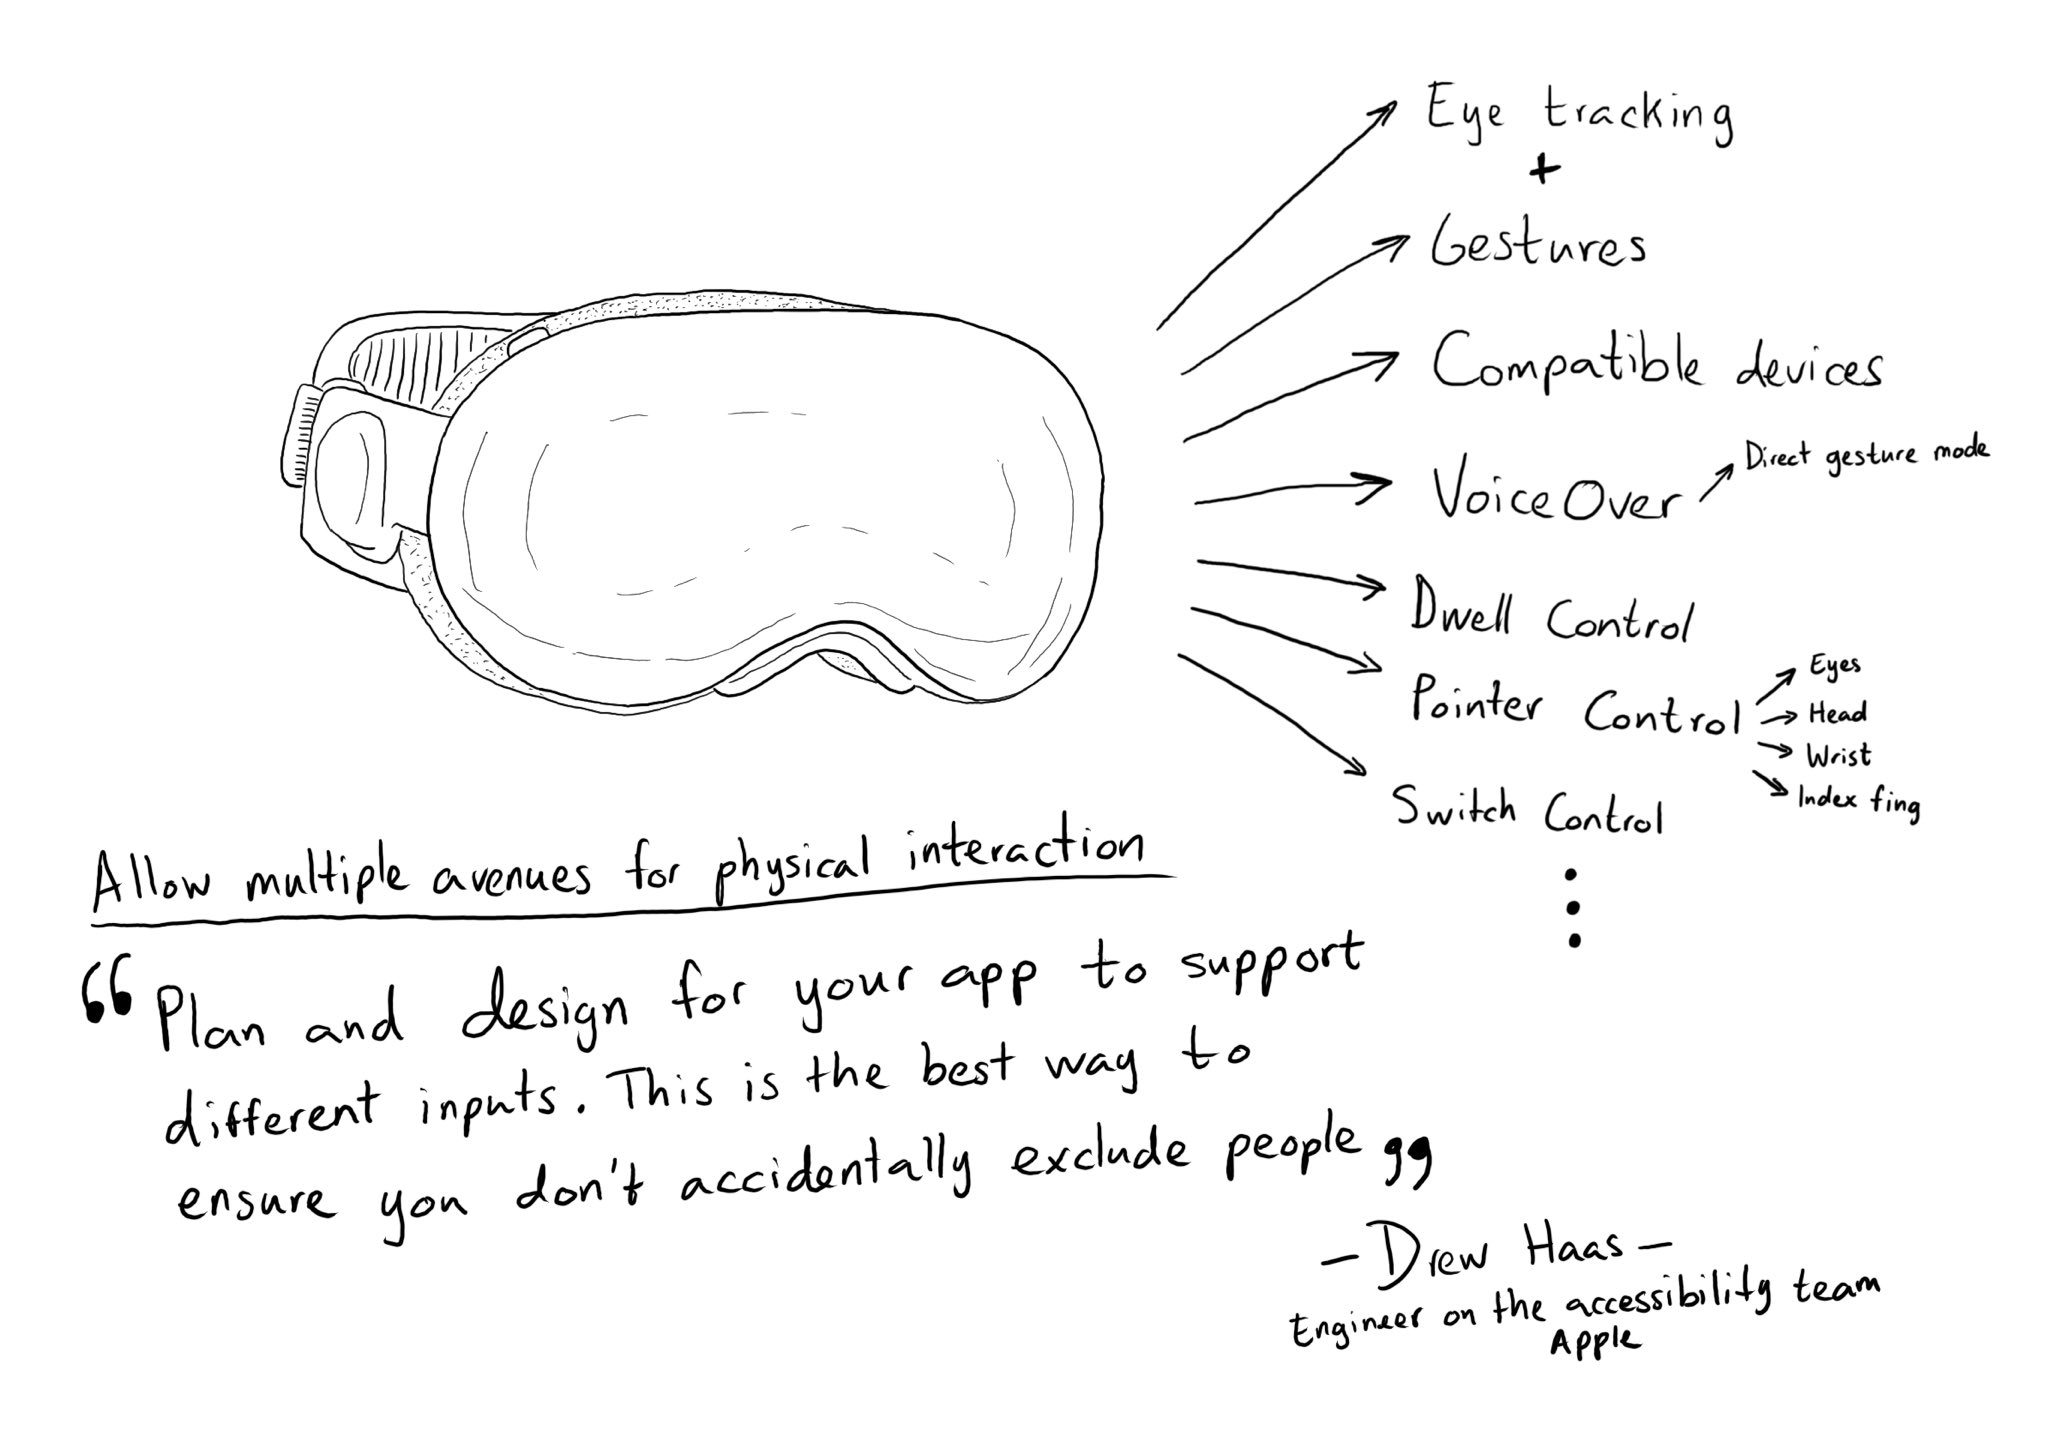 Eye tracking
+
Gestures
Compatible devices
VoiceOver
Direct gesture mode
Dwell Control
Pointer Control
Eyes
Head
Wrist
Index fing
Switch Control
Allow multiple avenues for physical interaction
“Plan and design for your app to support
different inputs. This is the best way to
ensure you don't accidentally exclude people”
– Drew Haas –
Engineer on the accessibility team
Apple